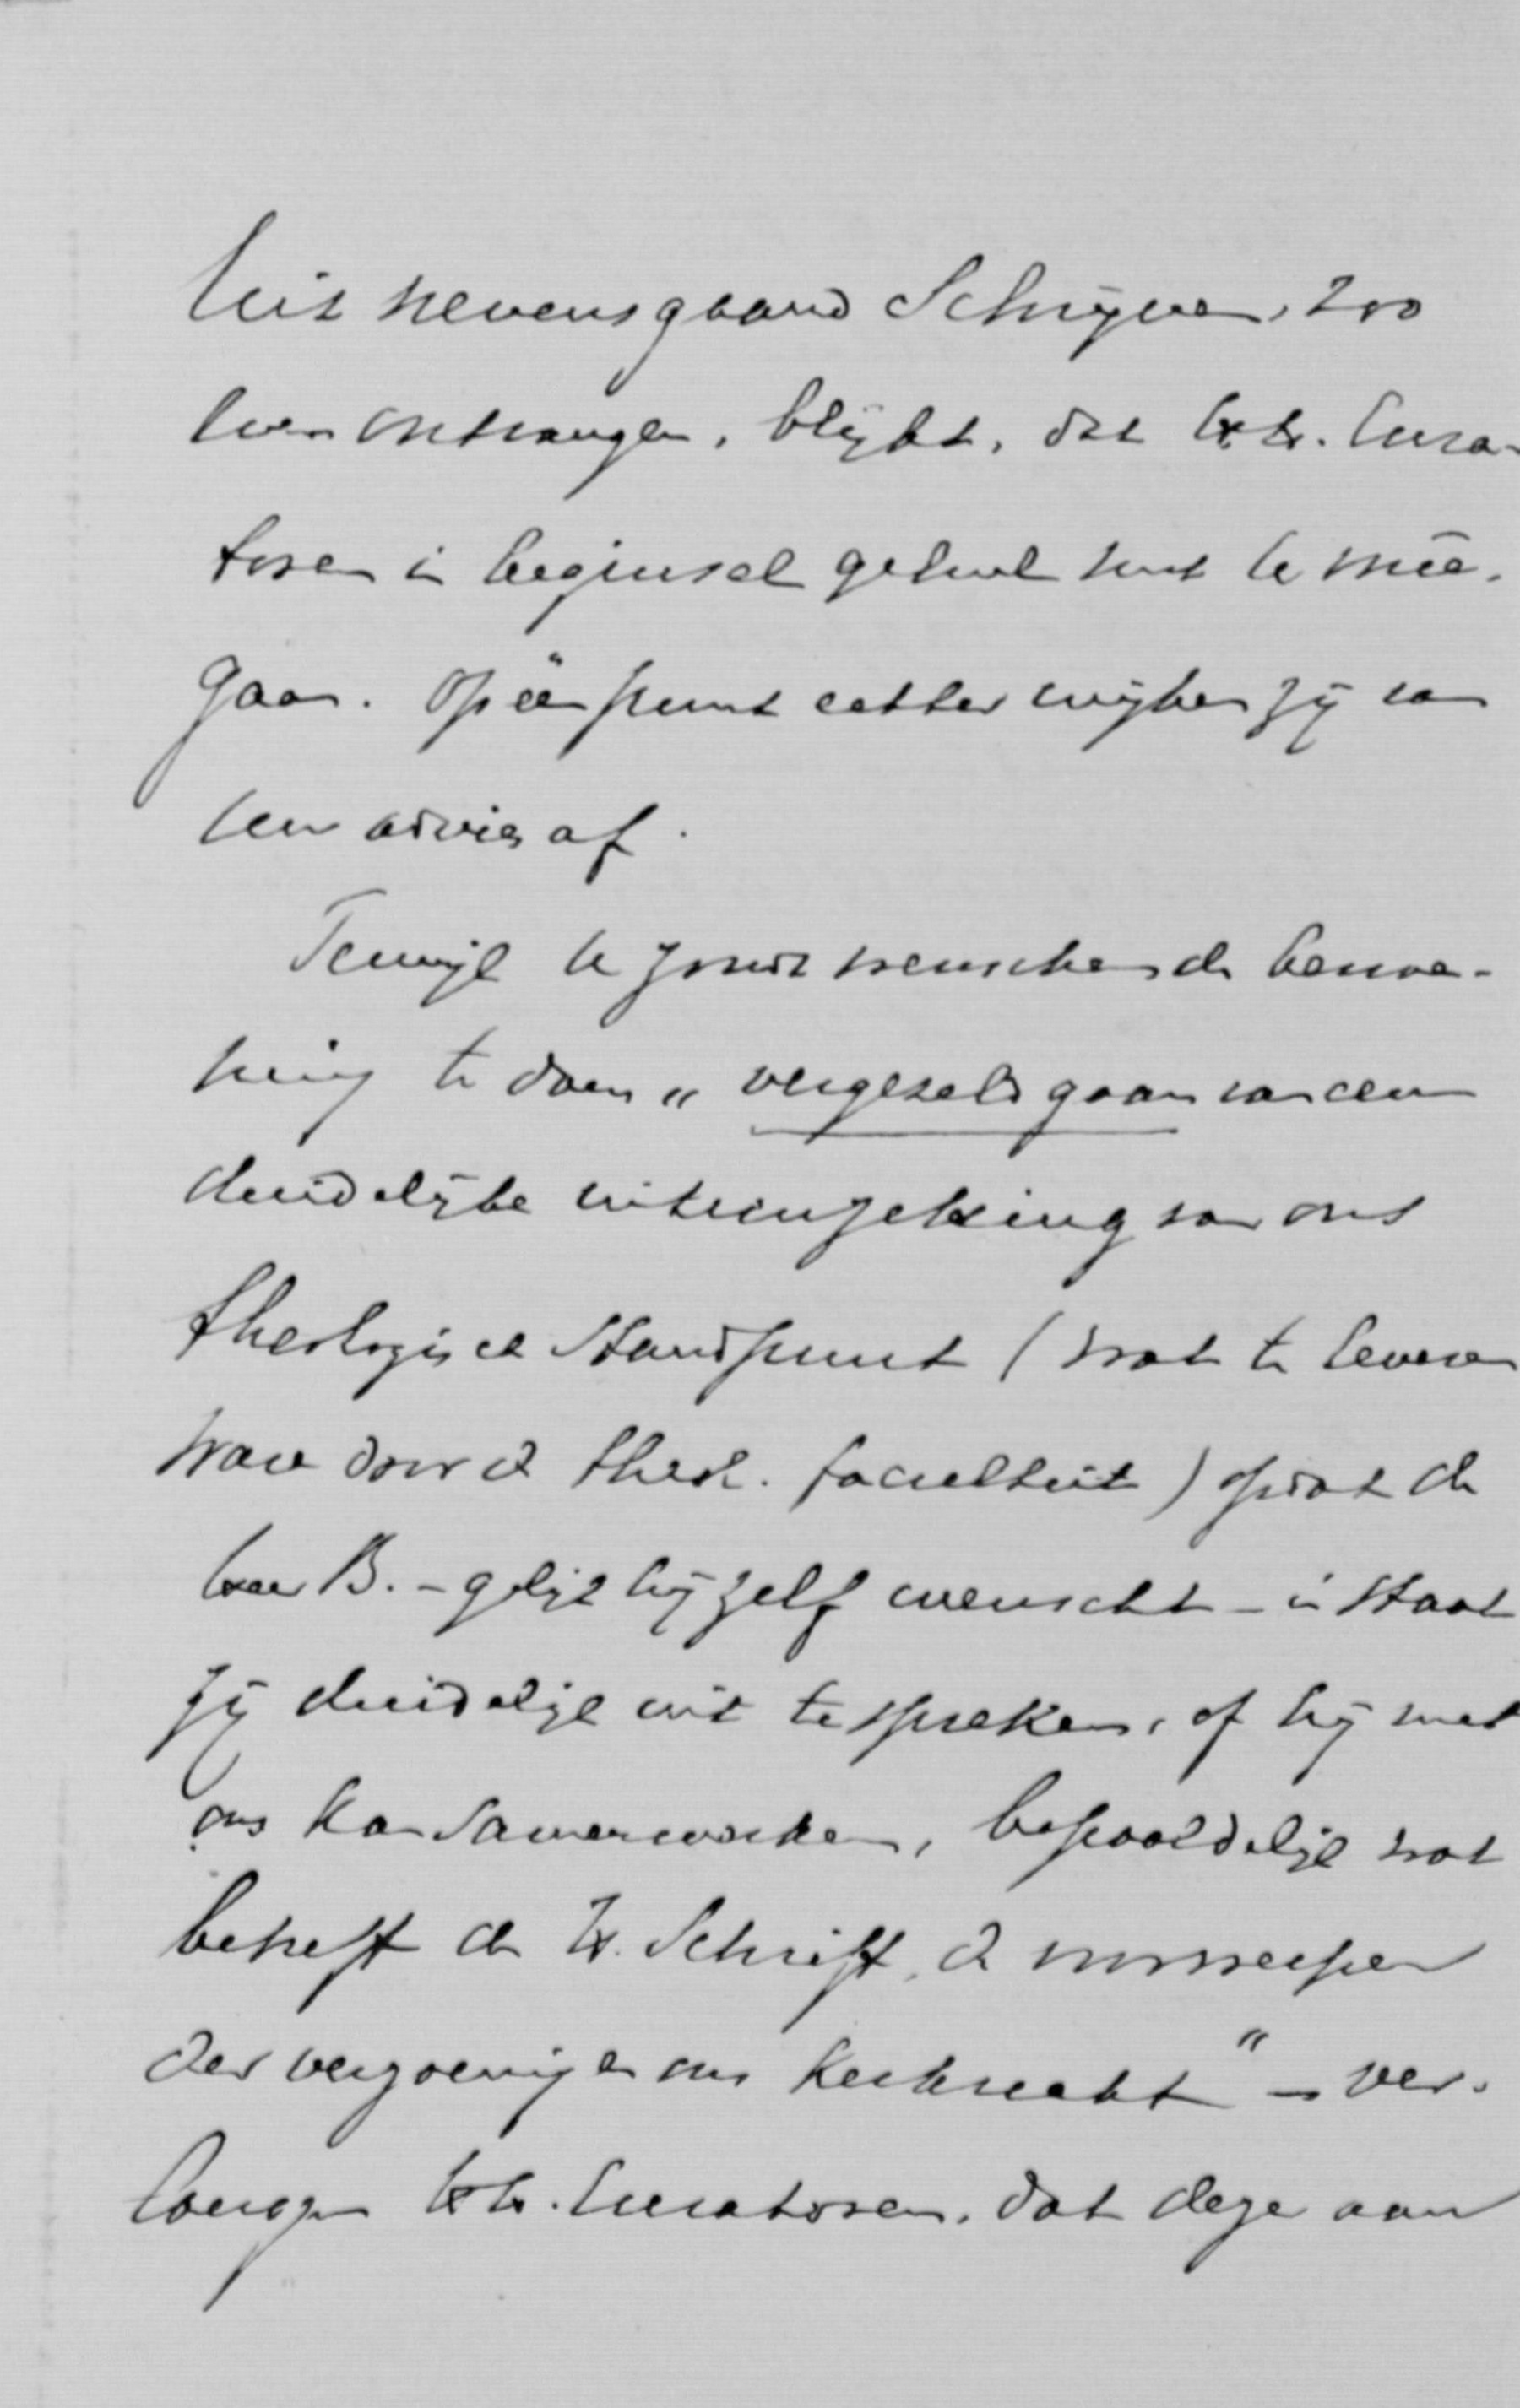 Uit nevensgaand Schrijven, zoo
even ontvangen, blijkt, dat HH. Cura-
toren in beginsel geheel met U mêe-
gaan. Op één punt echter wijken zij van
Uw advies af.
Terwijl U zoudt wenschen de benoe-
ming te doen „vergezeld gaan van een
duidelijke uiteenzetting van ons
theologisch Standpunt (wat te leveren
ware door de theol. faculteit) opdat de
heer B. - gelijk hij zelf wenscht - in staat
zij duidelijk uit te spreken, of hij met
ons kan samenwerken, bepaaldelijk wat
betreft de H. Schrift, de
der en ons Kerkrecht" - ver-
langen HH. Curatoren, dat deze aan